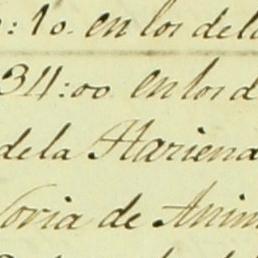 : 10. en los de la
34:00 en los d
de la Hariena
Noria de Anim